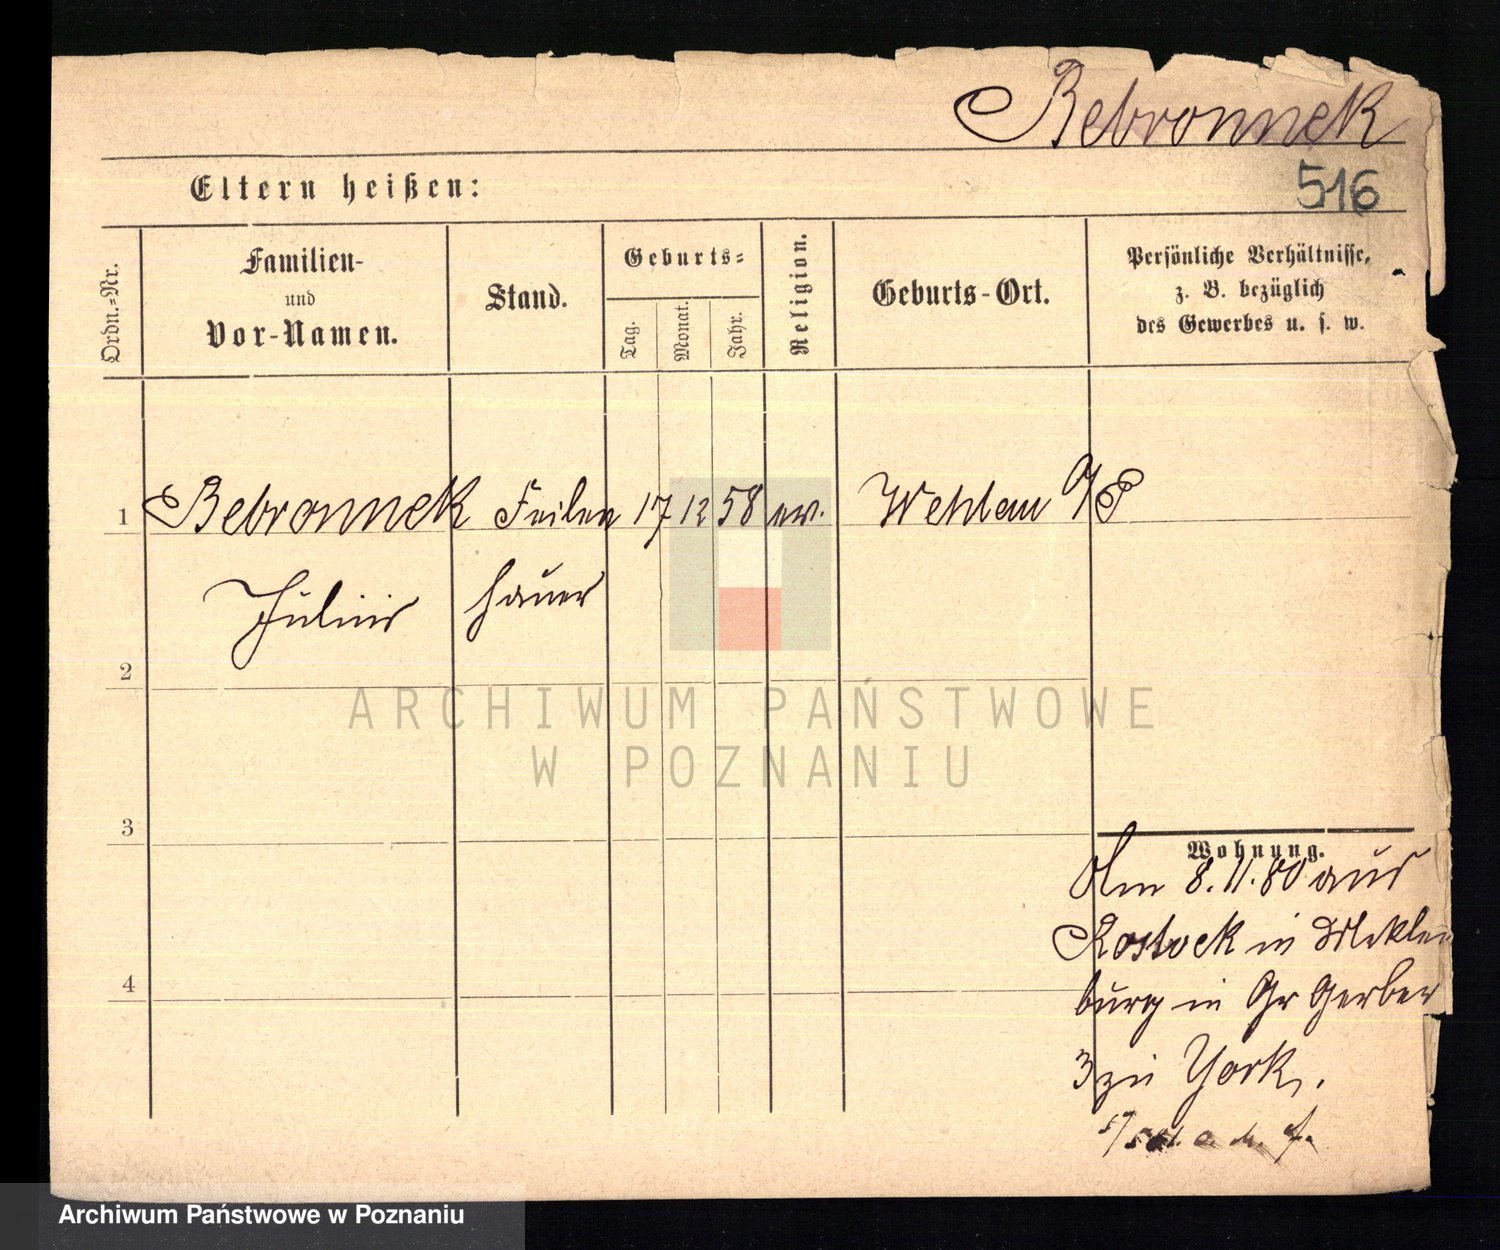 Bebronnek
516
Eltern heißen:
Ordn.-Nr.
Familien-
und
Vor-Namen.
Stand.
Geburts-
Tag.
Monat.
Jahr.
Religion.
Geburts-Ort.
Persönliche Verhältnisse,
z. B. bezüglich
des Gewerbes u. s. w.
1 Bebronnek Feilen 17 12 58 ev. Wehlau O/P
Julius hauer
2
ARCHIWUM PAŃSTWOWE
W POZNANIU
3
Wohnung.
Am 8.11.80 aus
Rostock in Meklen
4
burg in Gr Gerber
3 zu York,.
Archiwum Państwowe w Poznaniu